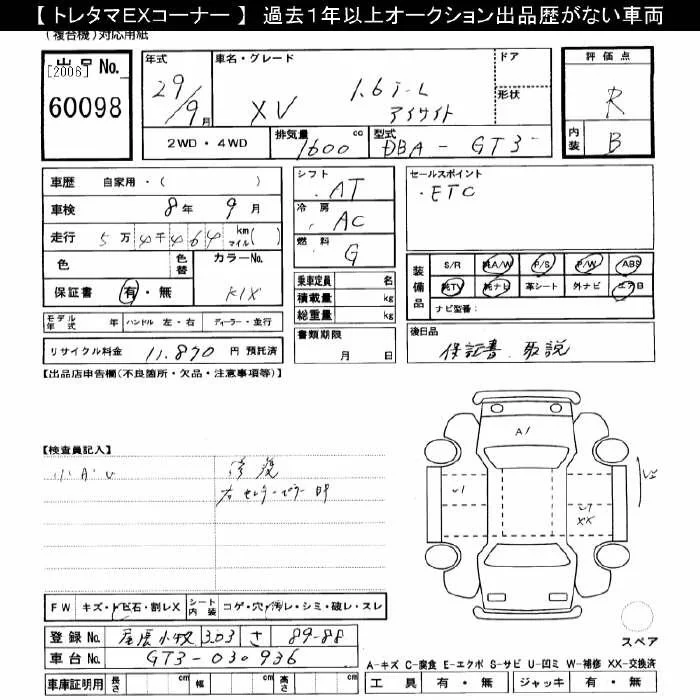 【 トレタマEXコーナー 】 過去1年以上オークション出品歴がない車両
(複合機)対応用紙
出品No.
[2006]
60098
年式 29/9月
車名・グレード XV 1.6i-L アイサイト
ドア
形状
評価点 R
内装 B
2WD・4WD
排気量 1600 cc
型式 DBA-GT3
車歴 自家用・( )
車検 8年 9月
走行 5万4千464 km マイル( )
色
色替
カラーNo. K1X
保証書 有・無
シフト AT
冷房 AC
燃料 G
乗車定員 名
積載量 kg
総重量 kg
セールスポイント
・ETC
装備品
S/R 純A/W P/S P/W ABS
純TV 純ナビ 革シート 外ナビ エアB
ナビ型番:
モデル年式 年 ハンドル 左・右 ディーラー・並行
リサイクル料金 11,870 円 預託済
書類期限 月 日
後日品
保証書 取説
【出品店申告欄(不良箇所・欠品・注意事項等)】
【検査員記入】
小A U
修復
右センターピラーロP
A1
U1
XX
FW キズ・トビ石・割レX
シート内装 コゲ・穴・汚レ・シミ・破レ・スレ
登録No. 尾張小牧 303 さ 89-88
車台No. GT3-030936
車庫証明用 長さ cm 幅 cm 高さ cm
スペア
A-キズ C-腐食 E-エクボ S-サビ U-凹ミ W-補修 XX-交換済
工具 有・無 ジャッキ 有・無